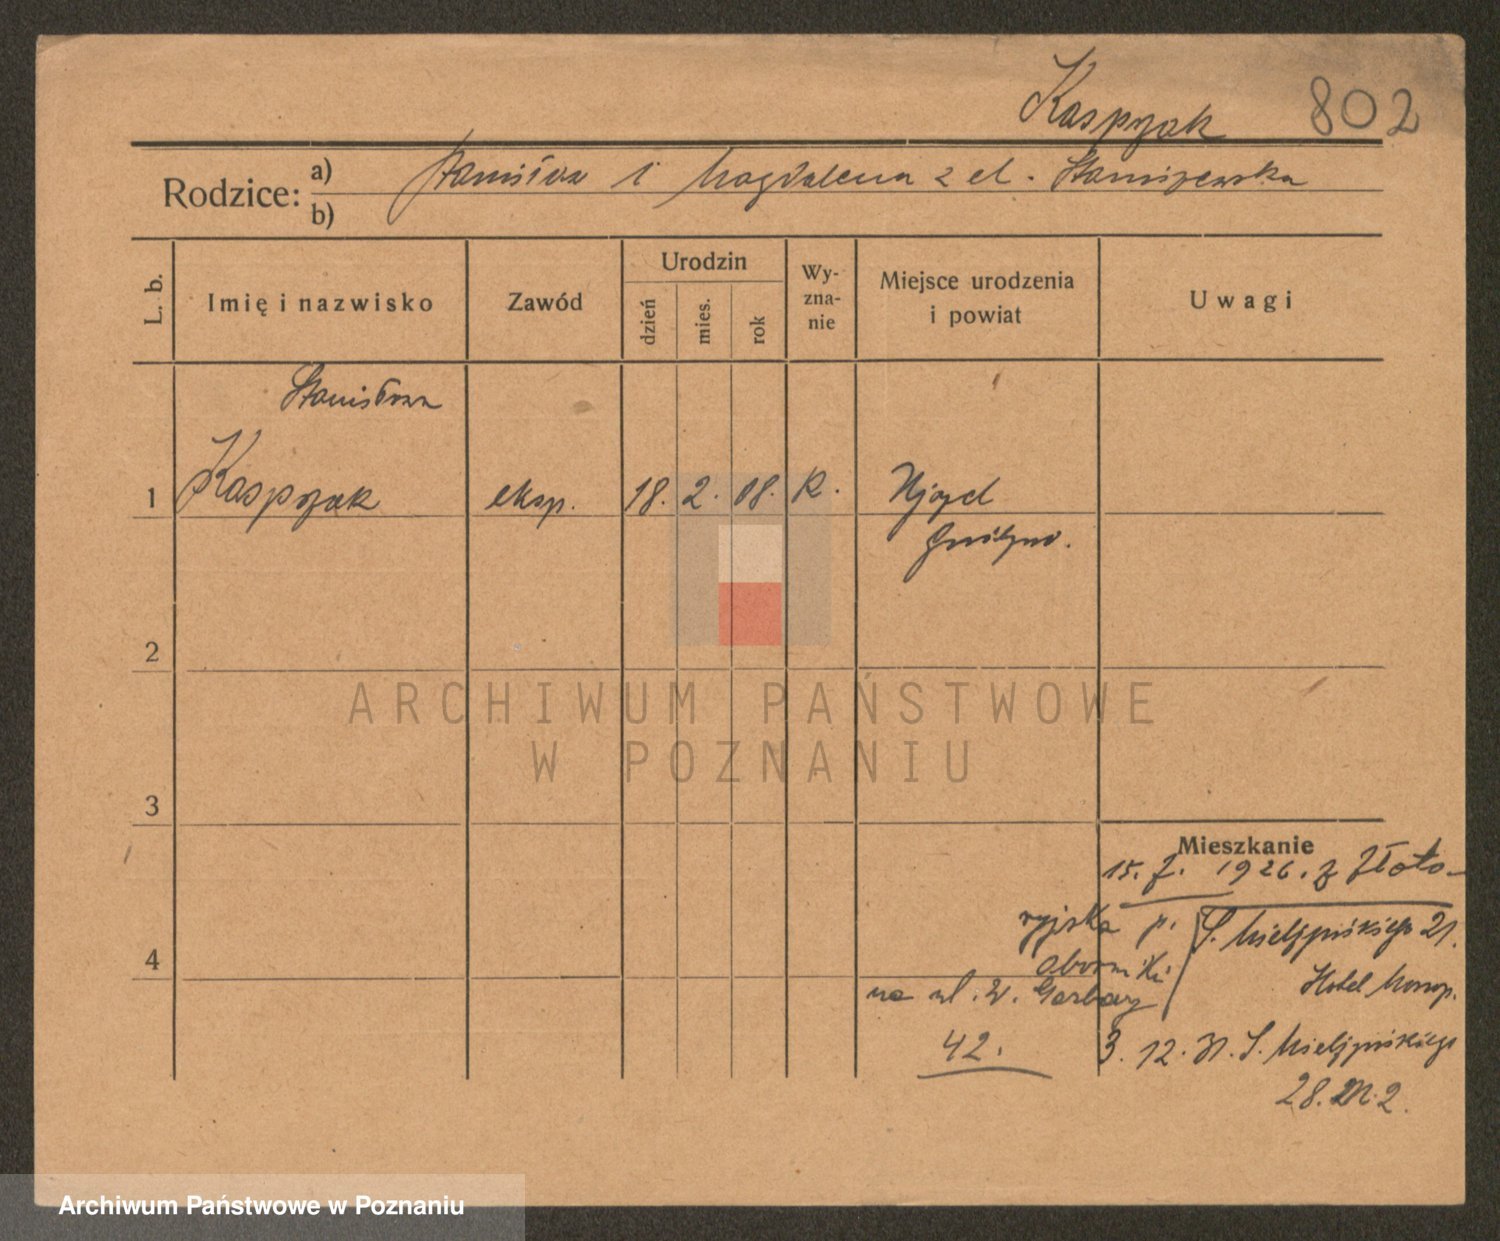 Kasprzak 802
Rodzice: a) Stanisław i Magdalena z d. Staniszewska
b)
L. b.
Imię i nazwisko
Zawód
Urodzin
dzień
mies.
rok
Wy-
zna-
nie
Miejsce urodzenia
i powiat
Uwagi
Stanisława
1 Kasprzak eksp. 18. 2. 08. R. Ujazd
Gniezno.
2
ARCHIWUM PAŃSTWOWE
W POZNANIU
3
Mieszkanie
15. 7. 1926. z Złoto-
ryjska p. S. Mielżyńskiego 21.
4 Oborniki Hotel Monop.
na ul. W. Garbary
42. 3. 12. 31. S. Mielżyńskiego
28. m. 2.
Archiwum Państwowe w Poznaniu